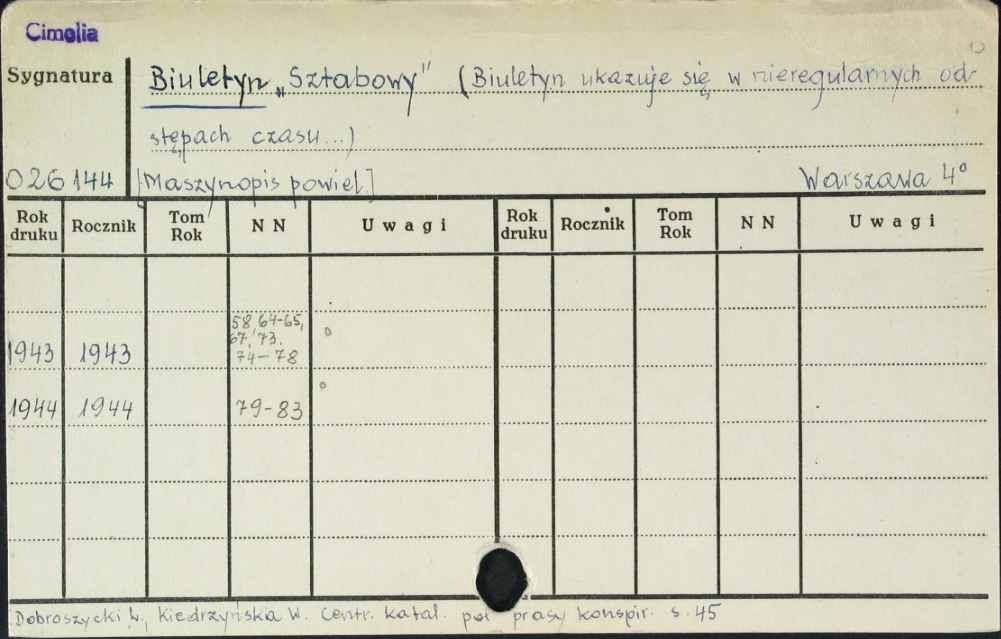 Cimelia
Sygnatura
Biuletyn „Sztabowy" (Biuletyn ukazuje się w nieregularnych od-
stępach czasu...)
026144 [Maszynopis powiel.] Warszawa 4°
Rok druku Rocznik Tom Rok NN Uwagi Rok druku Rocznik Tom Rok NN Uwagi
58, 64-65,
67, 73.
1943 1943 74-78
1944 1944 79-83
Dobroszycki L., Kiedrzyńska W. Centr. katal. pol prasy konspir. s. 45